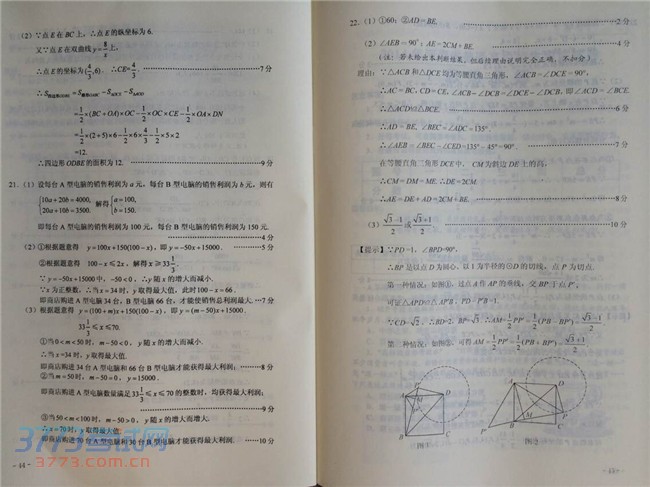 (2)∵点E在BC上,∴点E的纵坐标为6.
又∵点E在双曲线y=8/x上,
∴点E的坐标为(4/3,6). ∴CE=4/3. ……7分
=1/2×(BC+OA)×OC-1/2×OC×CE-1/2×OA×DN
=1/2×(2+5)×6-1/2×6×4/3-1/2×5×2
=12.
∴四边形ODBE的面积为12. ……9分
21.(1)设每台A型电脑的销售利润为a元,每台B型电脑的销售利润为b元,则有
{10a+20b=4000, 20a+10b=3500. 解得{a=100, b=150.
即每台A型电脑的销售利润为100元,每台B型电脑的销售利润为150元.
……4分
(2)①根据题意得 y=100x+150(100-x),即y=-50x+15000. ……5分
②根据题意得 100-x≤2x,解得x≥33 1/3.
∵y=-50x+15000中,-50<0,∴y随x的增大而减小.
∵x为正整数,∴当x=34时,y取得最大值,此时100-x=66.
即商店购进A型电脑34台,B型电脑66台,才能使销售总利润最大.…7分
(3)根据题意得 y=(100+m)x+150(100-x),即y=(m-50)x+15000.
33 1/3≤x≤70.
①当0<m<50时,m-50<0,y随x的增大而减小.
∴当x=34时,y取得最大值.
即商店购进34台A型电脑和66台B型电脑才能获得最大利润;……8分
②当m=50时,m-50=0,y=15000.
即商店购进A型电脑数量满足33 1/3≤x≤70的整数时,均获得最大利润;
……9分
③当50<m<100时,m-50>0,y随x的增大而增大.
∴x=70时,y取得最大值.
即商店购进70台A型电脑和30台B型电脑才能获得最大利润.……10分
- 44 -
3773考试网
3773.com.cn
22.(1)①60;②AD=BE. ……2分
(2)∠AEB=90°;AE=2CM+BE. ……4分
(注:若未给出本判断结果,但后续理由说明完全正确,不扣分)
理由:∵△ACB和△DCE均为等腰直角三角形,∠ACB=∠DCE=90°,
∴AC=BC,CD=CE,∠ACB-∠DCB=∠DCE-∠DCB,即∠ACD=∠BCE.
∴△ACD≌△BCE. ……6分
∴AD=BE,∠BEC=∠ADC=135°.
∴∠AEB=∠BEC-∠CED=135°-45°=90°. ……7分
在等腰直角三角形DCE中,CM为斜边DE上的高,
∴CM=DM=ME.∴DE=2CM.
∴AE=DE+AD=2CM+BE. ……8分
(3)(√3-1)/2或(√3+1)/2 ……10分
【提示】∵PD=1,∠BPD=90°,
∴BP是以点D为圆心,以1为半径的⊙D的切线,点P为切点.
第一种情况:如图①,过点A作AP的垂线,交BP于点P′,
可证△APD≌△AP′B,PD=P′B=1.
∵CD=√2,∴BD=2,BP=√3.∴AM=1/2PP′=1/2(PB-BP′)=(√3-1)/2.
第二种情况:如图②,可得AM=1/2PP′=1/2(PB+BP′)=(√3+1)/2.
P
A
D
P′
M
B
C
图①
A
D
P
M
P′
B
C
图②